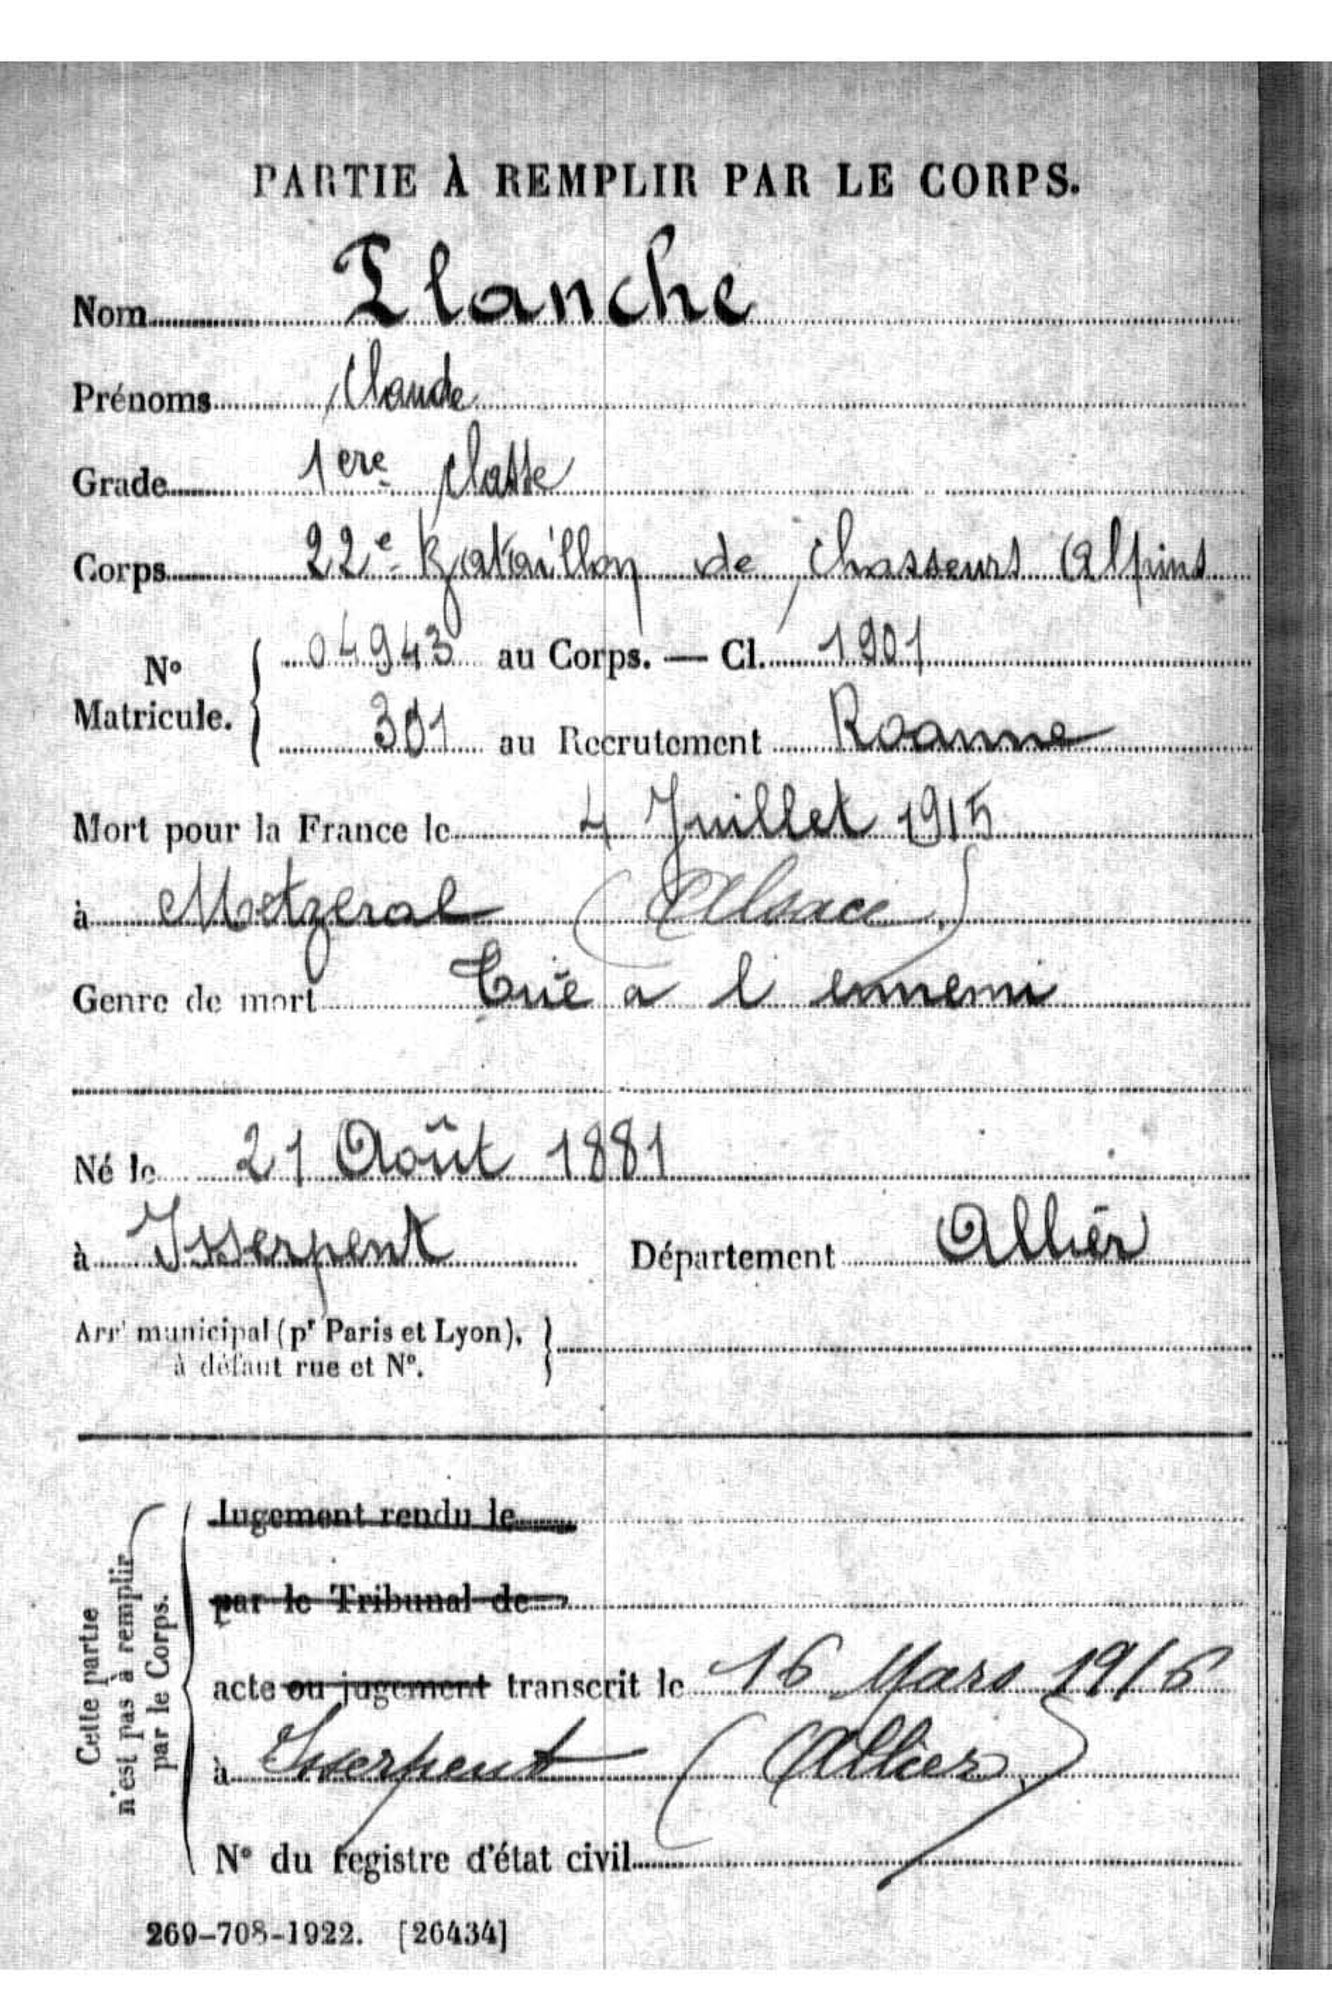 PARTIE À REMPLIR PAR LE CORPS.
Nom Planche
Prénoms Claude
Grade 1ere classe
Corps 22e Bataillon de Chasseurs Alpins
N° Matricule. 04943 au Corps. — Cl. 1901
301 au Recrutement Roanne
Mort pour la France le 4 Juillet 1915
à Metzeral (Alsace)
Genre de mort Tué a l ennemi
Né le 21 Août 1881
à Isserpent Département Allier
Arrt municipal (pr Paris et Lyon),
à défaut rue et N°.
Cette partie
n'est pas à remplir
par le Corps.
Jugement rendu le
par le Tribunal de
acte ou jugement transcrit le 16 Mars 1916
à Isserpent (Allier)
N° du registre d'état civil
269-708-1922. [26434]